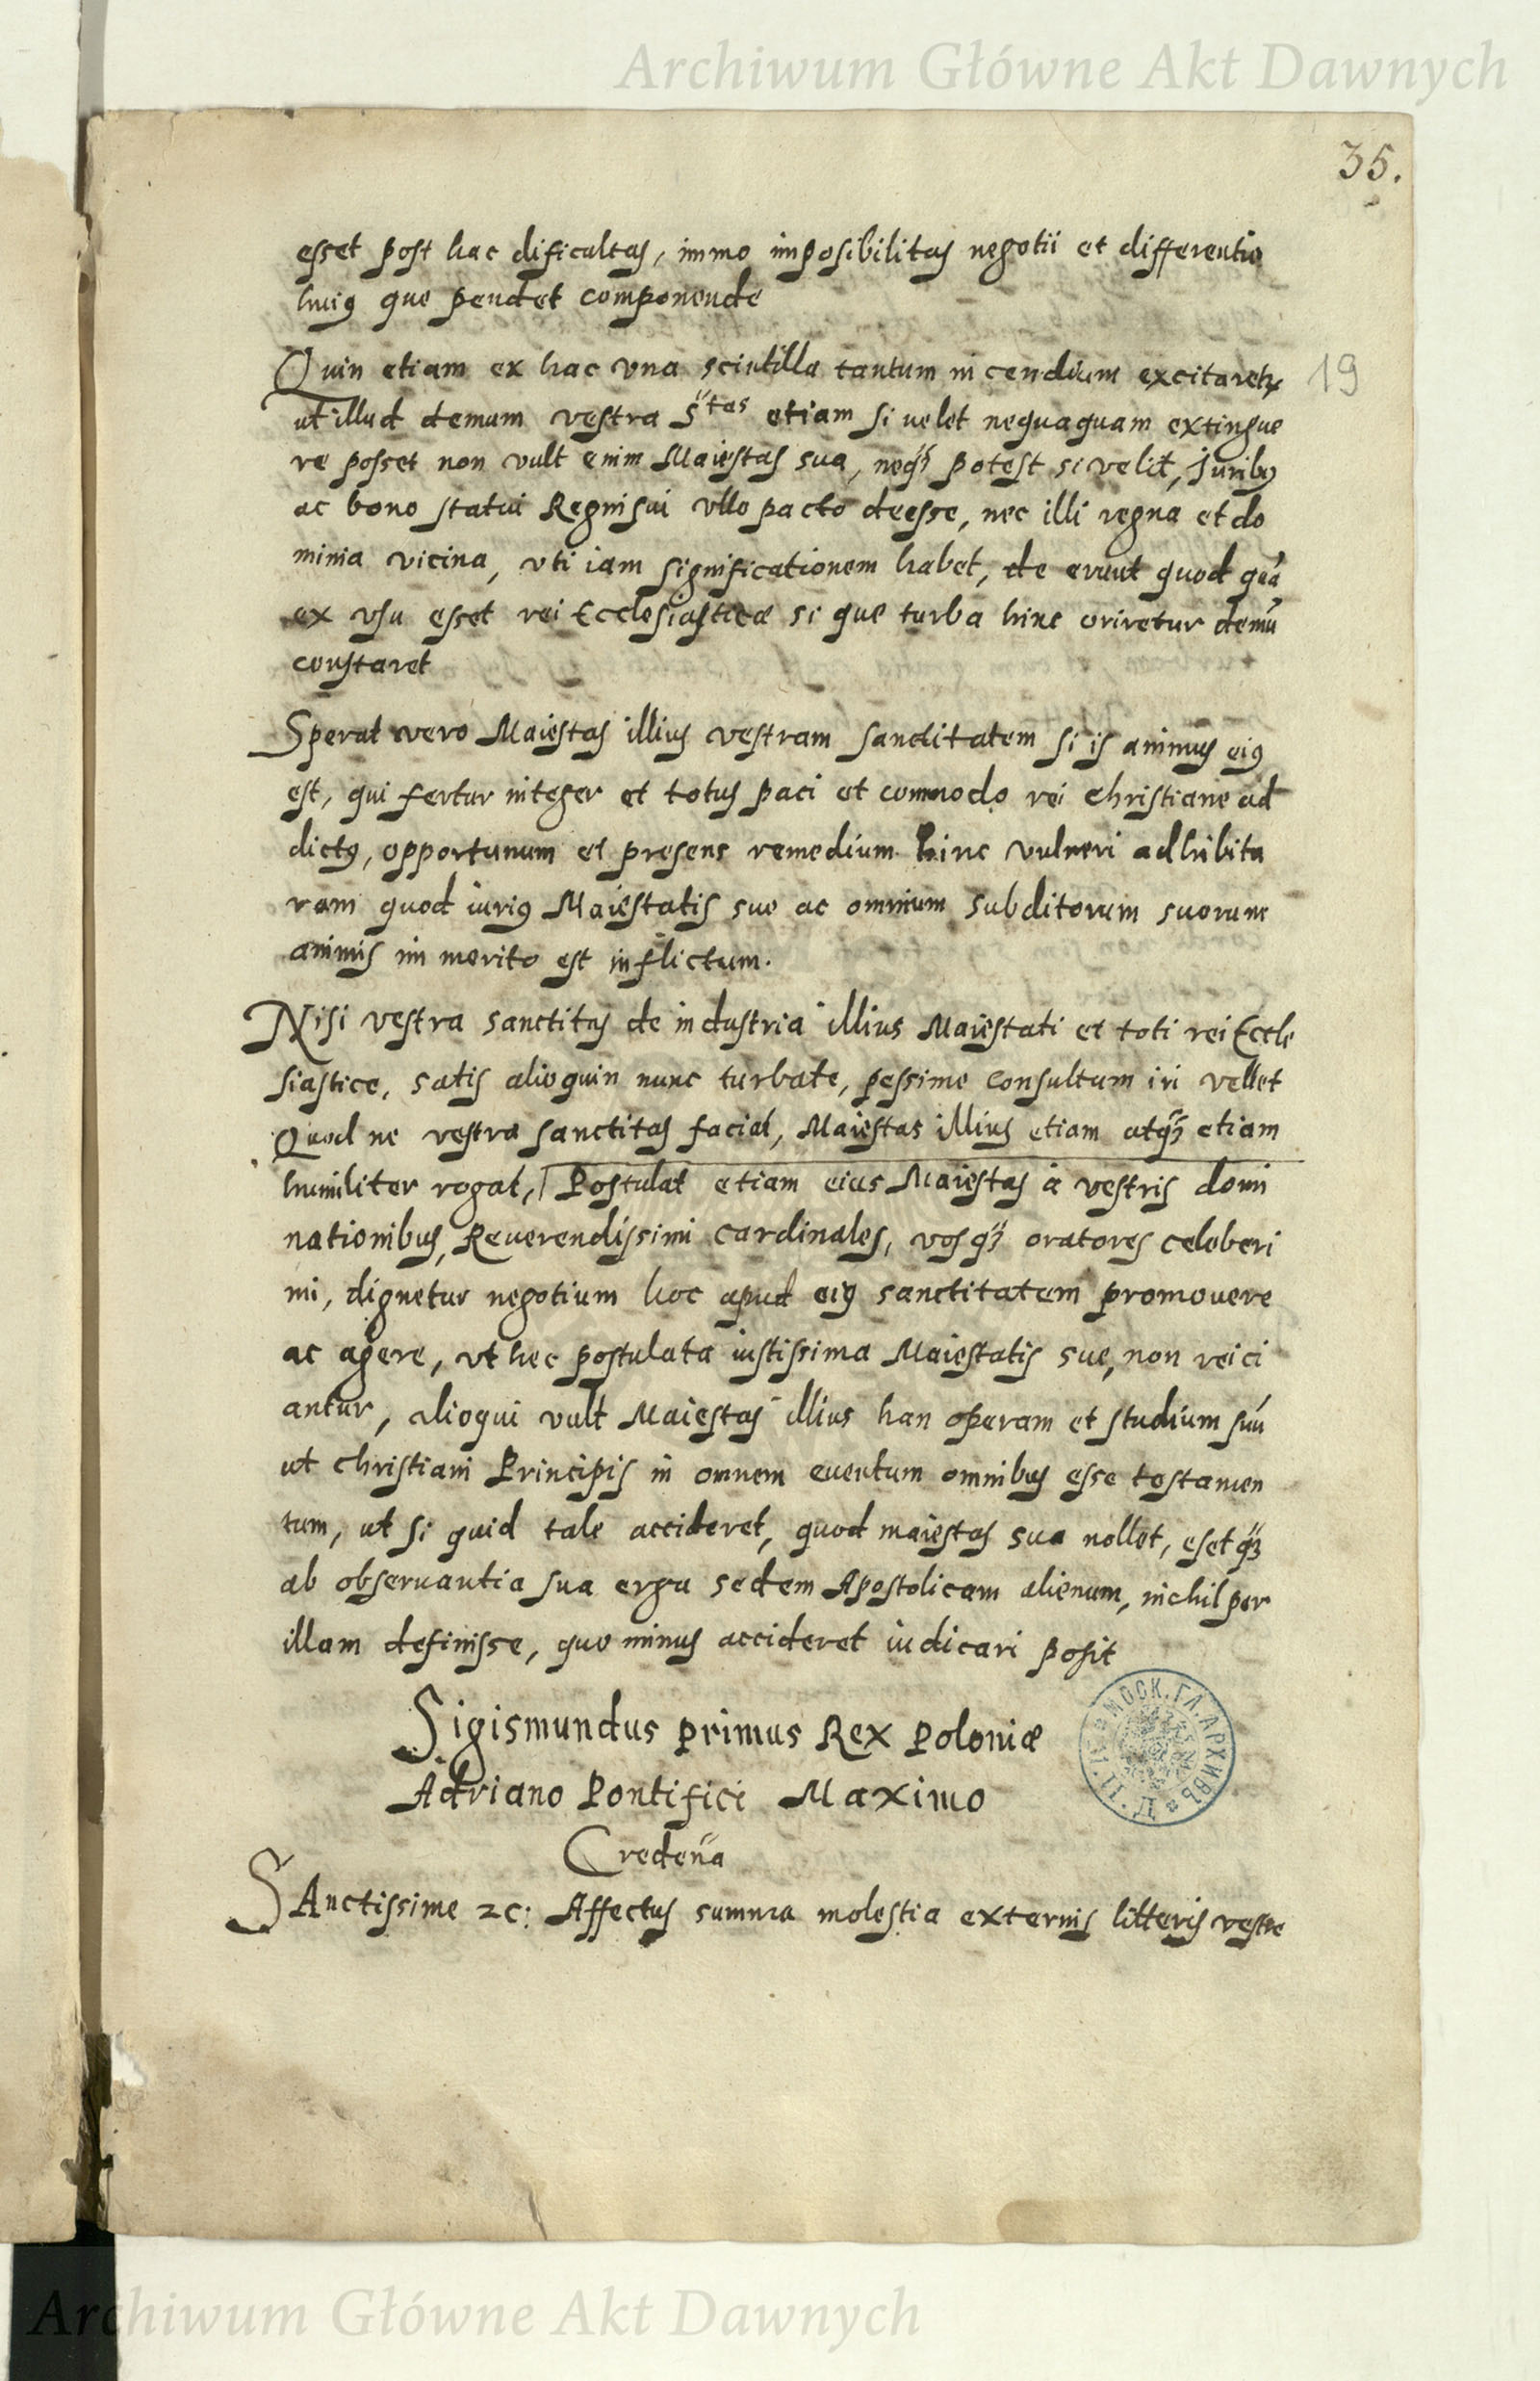 Archiwum Główne Akt Dawnych
35.
esset post hac dificultas, immo imposibilitas negotii et differentie
huiꝯ que pendet componende
Quin etiam ex hac vna scintilla tantum incendium excitaretur
19
ut illud demum vestra Stas etiam si uelet nequaquam extingue
re posset non vult enim Maiestas sua, neqȝ potest si velit, Juribꝯ
ac bono statui Regni sui vllo pacto deesse, nec illi regna et do
minia vicina, vti iam significationem habet, de erunt quod
ex vsu esset rei Ecclesiasticæ si que turba hinc oriretur demū
constaret
Sperat vero Maiestas illius vestram sanctitatem si is animus eiꝯ
est, qui fertur integer et totus paci et commodo rei christiane ad
dictꝯ, opportunum et presens remedium hinc vulneri adhibitu
ram quod iuriꝯ Maiestatis sue ac omnium subditorum suorum
animis immerito est inflictum.
Nisi vestra sanctitas de industria illius Maiestati et toti rei Eccle
siastice, satis alioquin nunc turbate, pessime consultum iri vellet
Quod ne vestra sanctitas faciat, Maiestas illius etiam atqȝ etiam
humiliter rogat, Postulat etiam eius Maiestas à vestris domi
nationibus, Reuerendissimi Cardinales, vosqȝ oratores celeberi
mi, dignetur negotium hoc apud eiꝯ sanctitatem promouere
ac agere, vt hec postulata iustissima Maiestatis sue, non reici
antur, alioqui vult Maiestas illius han operam et studium suū
ut christiani Principis in omnem euentum omnibus esse testamen
tum, ut si quid tale accideret, quod maiestas sua nollet, esetqȝ
ab obseruantia sua erga sedem Apostolicam alienum, nichil per
illam definisse, quo minus accideret iudicari posit
Sigismundus primus Rex Poloniæ
Adriano Pontifici Maximo
Credenā
SAnctissime ⁊c: Affectus summa molestia externis litteris vestre
Archiwum Główne Akt Dawnych